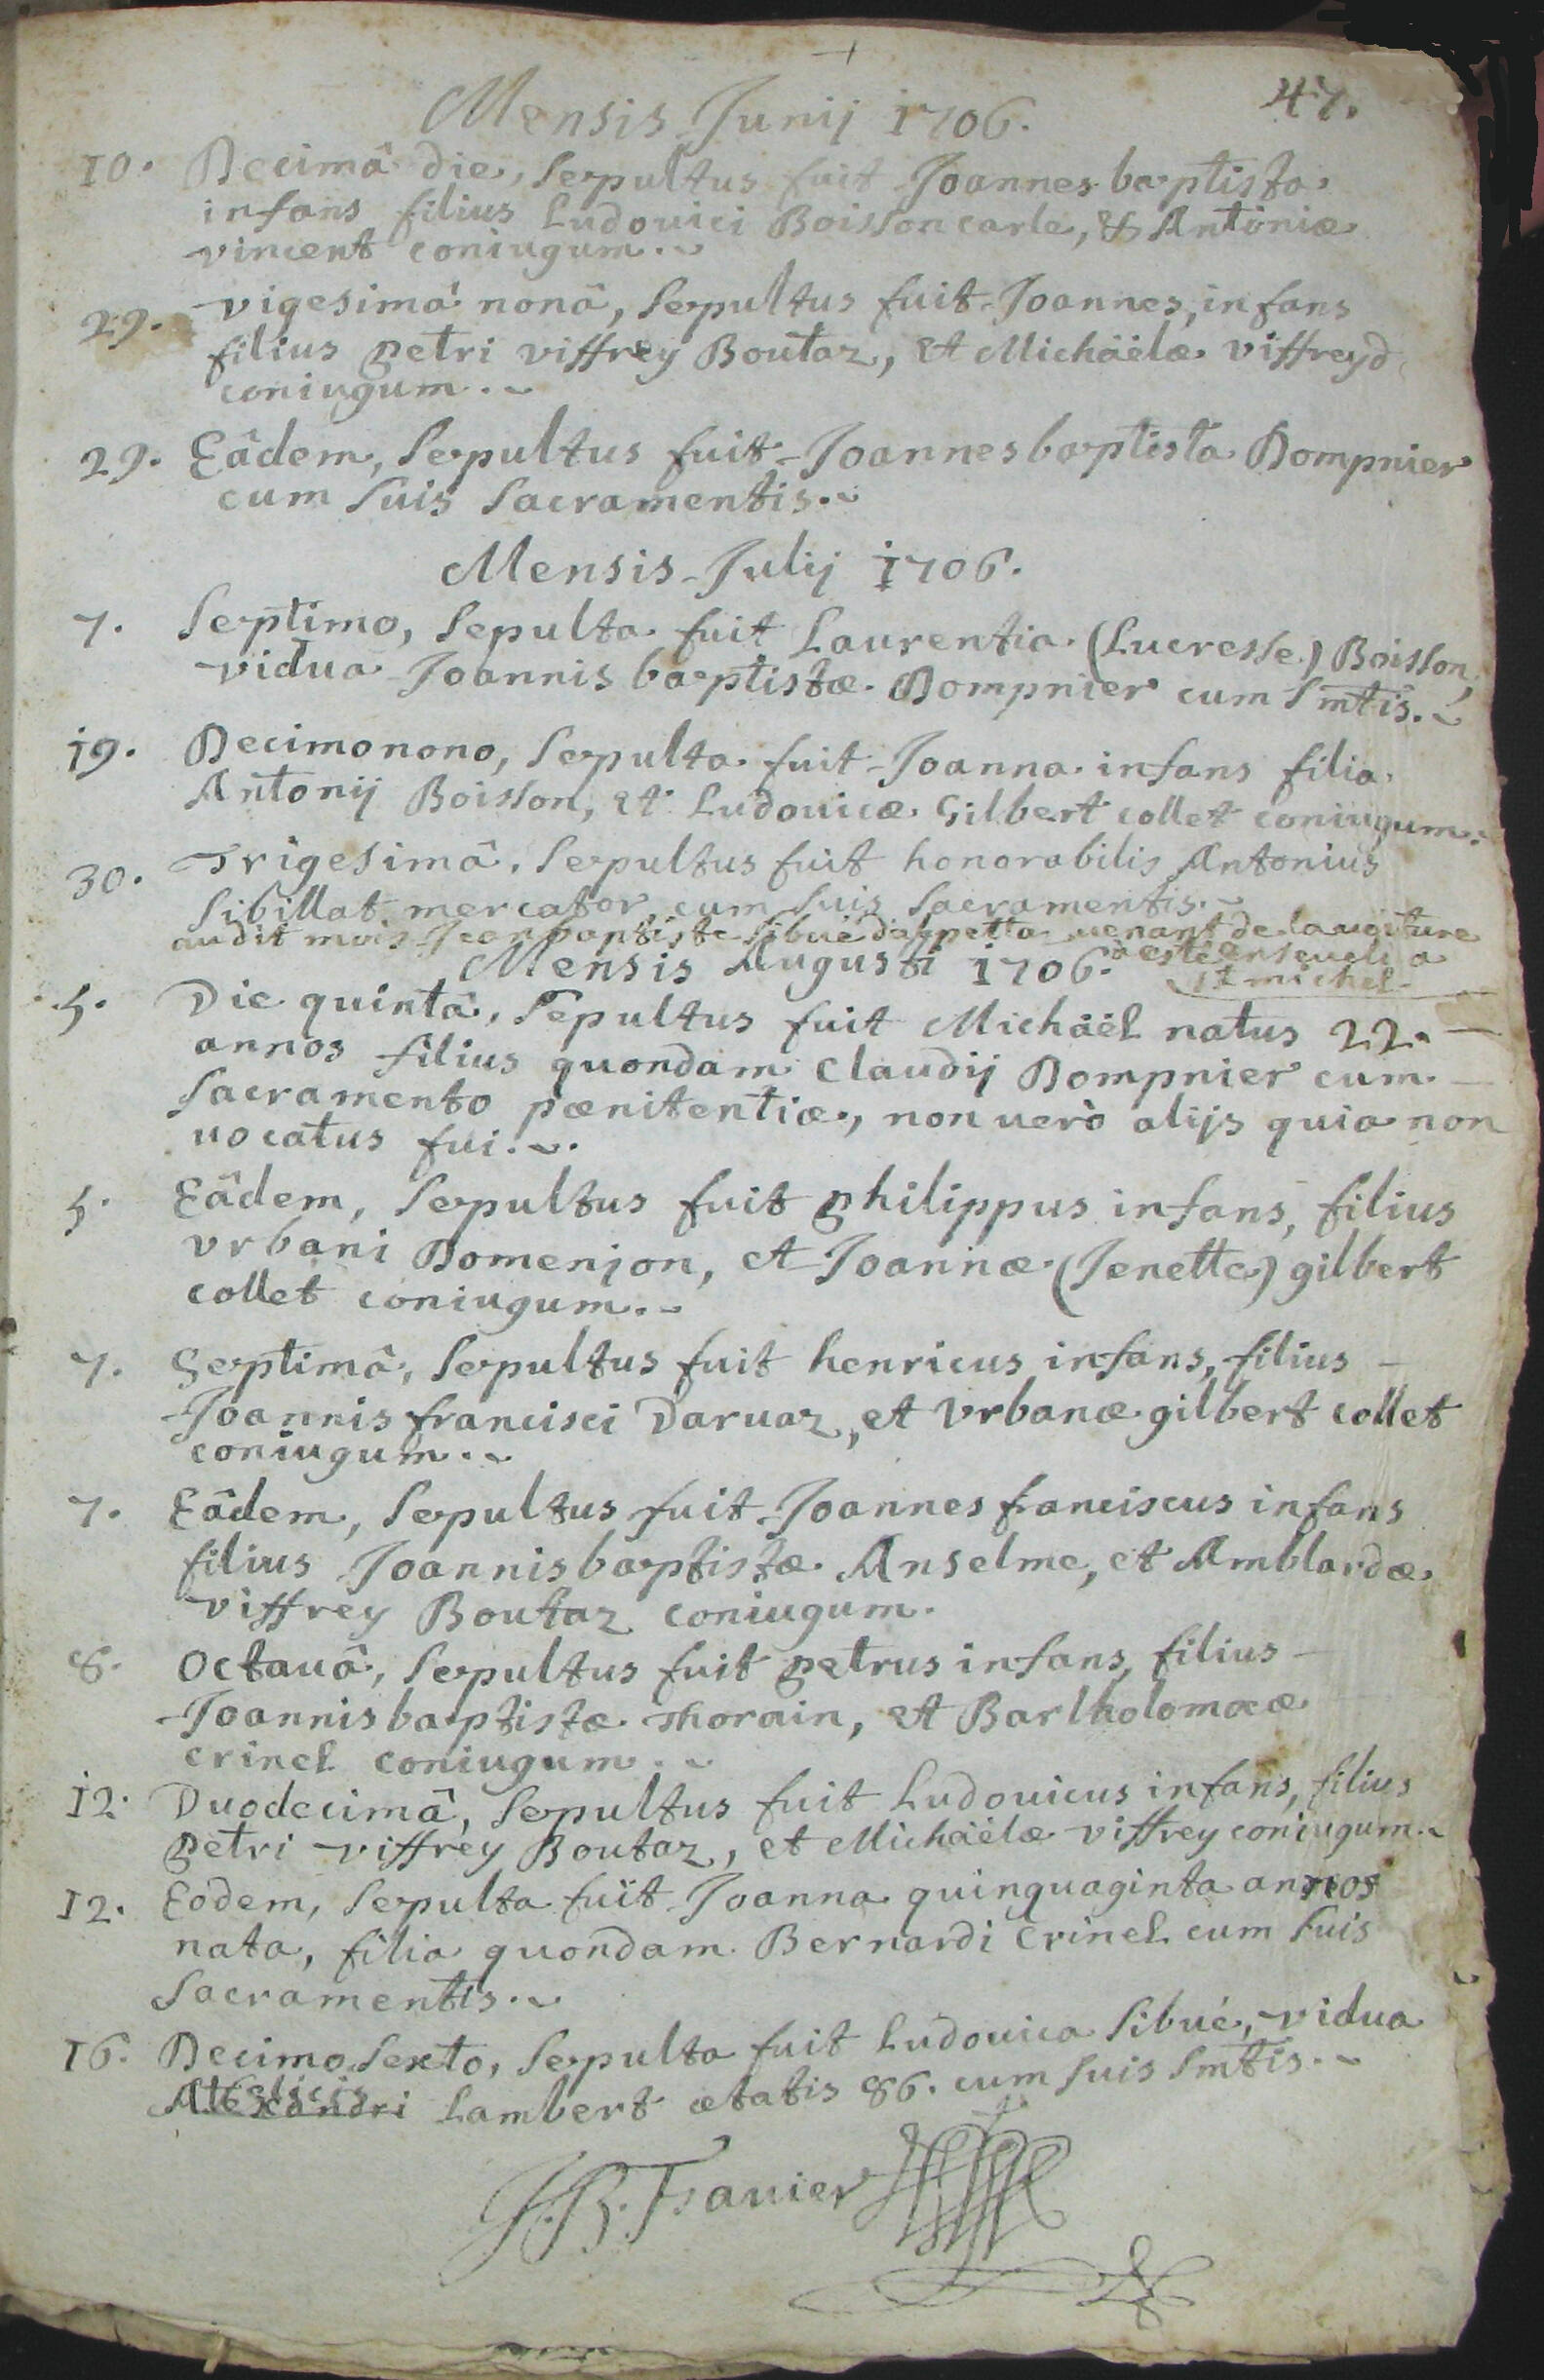 47.
Mensis Junij 1706.
10. Decimâ die, sepultus fuit Joannes baptista
infans filius Ludouici Boisson carle, & Antoniæ
vincent coniugum.
29. vigesimâ nonâ, sepultus fuit Joannes, infans
filius petri viffrey Boutaz, et Michäélæ viffreyd
coniugum.
29. Eâdem, sepultus fuit Joannes baptista Dompnier
cum suis sacramentis.
Mensis Julij 1706.
7. Septimo, sepulta fuit Laurentia (Lucresse) Boisson,
vidua Joannis baptistæ Dompnier cum smtis.
19. Decimonono, sepulta fuit Joanna infans filia
Antonij Boisson, et Ludouicæ Gilbert collet coniugum.
30. Trigesimâ, sepultus fuit honorabilis Antonius
Sibillat mercator cum suis sacramentis.
audit mois Jean baptiste Sibué dalpetta uenant de la
a esté enseueli a
St michel
Mensis Augusti 1706.
5. Die quintâ, sepultus fuit Michäél natus 22.
annos filius quondam Claudij Dompnier cum
sacramento pœnitentiæ, non uerò alijs quia non
uocatus fui.
5. Eâdem, sepultus fuit philippus infans, filius
vrbani Domenjon, et Joannæ (Jenette) gilbert
collet coniugum.
7. Septimâ, sepultus fuit henricus infans, filius
Joannis francisci Daruaz, et vrbanæ gilbert collet
coniugum.
7. Eâdem, sepultus fuit Joannes franciscus infans
filius Joannis baptistæ Anselme, et Amblardæ
viffrey Boutaz coniugum.
8. Octauâ, sepultus fuit petrus infans, filius
Joannis baptistæ Thorain, et Bartholomææ
crinel coniugum.
12. Duodecimâ, sepultus fuit Ludouicus infans, filius
petri viffrey Boutaz, et Michäélæ viffrey coniugum.
12. Eodem, sepulta fuit Joanna quinquaginta annos
nata, filia quondam Bernardi Crinel cum suis
sacramentis.
16. Decimo sexto, sepulta fuit Ludouica Sibué, vidua
Alexandri Lambert ætatis 86. cum suis smtis.
J.B. Frauier